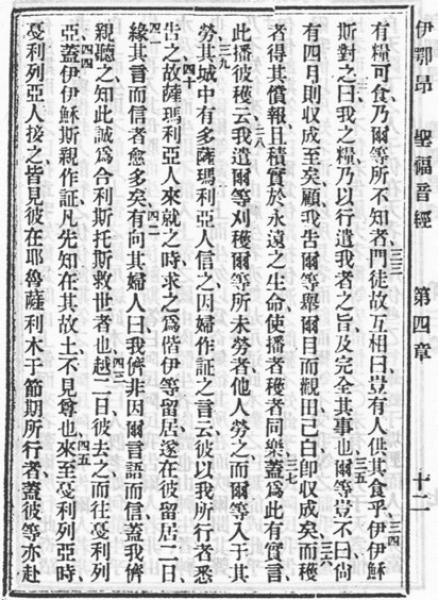 伊鄂昂 聖福音經 第四章 十二
有糧可食乃爾等所不知者、三三門徒故互相曰豈有人供其食乎、三四伊伊穌
斯對之曰我之糧乃以行遣我者之旨及完全其事也、三五爾等豈不曰尚
有四月則収成至矣、顧我告爾等舉爾目而觀田已白卽収成矣、三六而穫
者得其償報且積實於永遠之生命、使播者穫者同樂、三七蓋爲此有實言、
此播彼穫云、三八我遣爾等刈穫爾等所未勞者、他人勞之、而爾等入于其
勞、三九其城中有多薩瑪利亞人信之、因婦作証之言云彼以我所行者悉
告之、四十故薩瑪利亞人來就之時、求之爲偕伊等留居、遂在彼留居二日、
四一緣其言而信者愈多矣、四二有向其婦人曰、我儕非因爾言語而信、蓋我儕
親聽之、知此誠爲合利斯托斯救世者也、四三越二日彼去之而往戛利列
亞、四四蓋伊伊穌斯親作証凡先知在其故土、不見尊也、四五來至戛利列亞時、
戛利列亞人接之、皆見彼在耶魯薩利木于節期所行者、蓋彼等亦赴